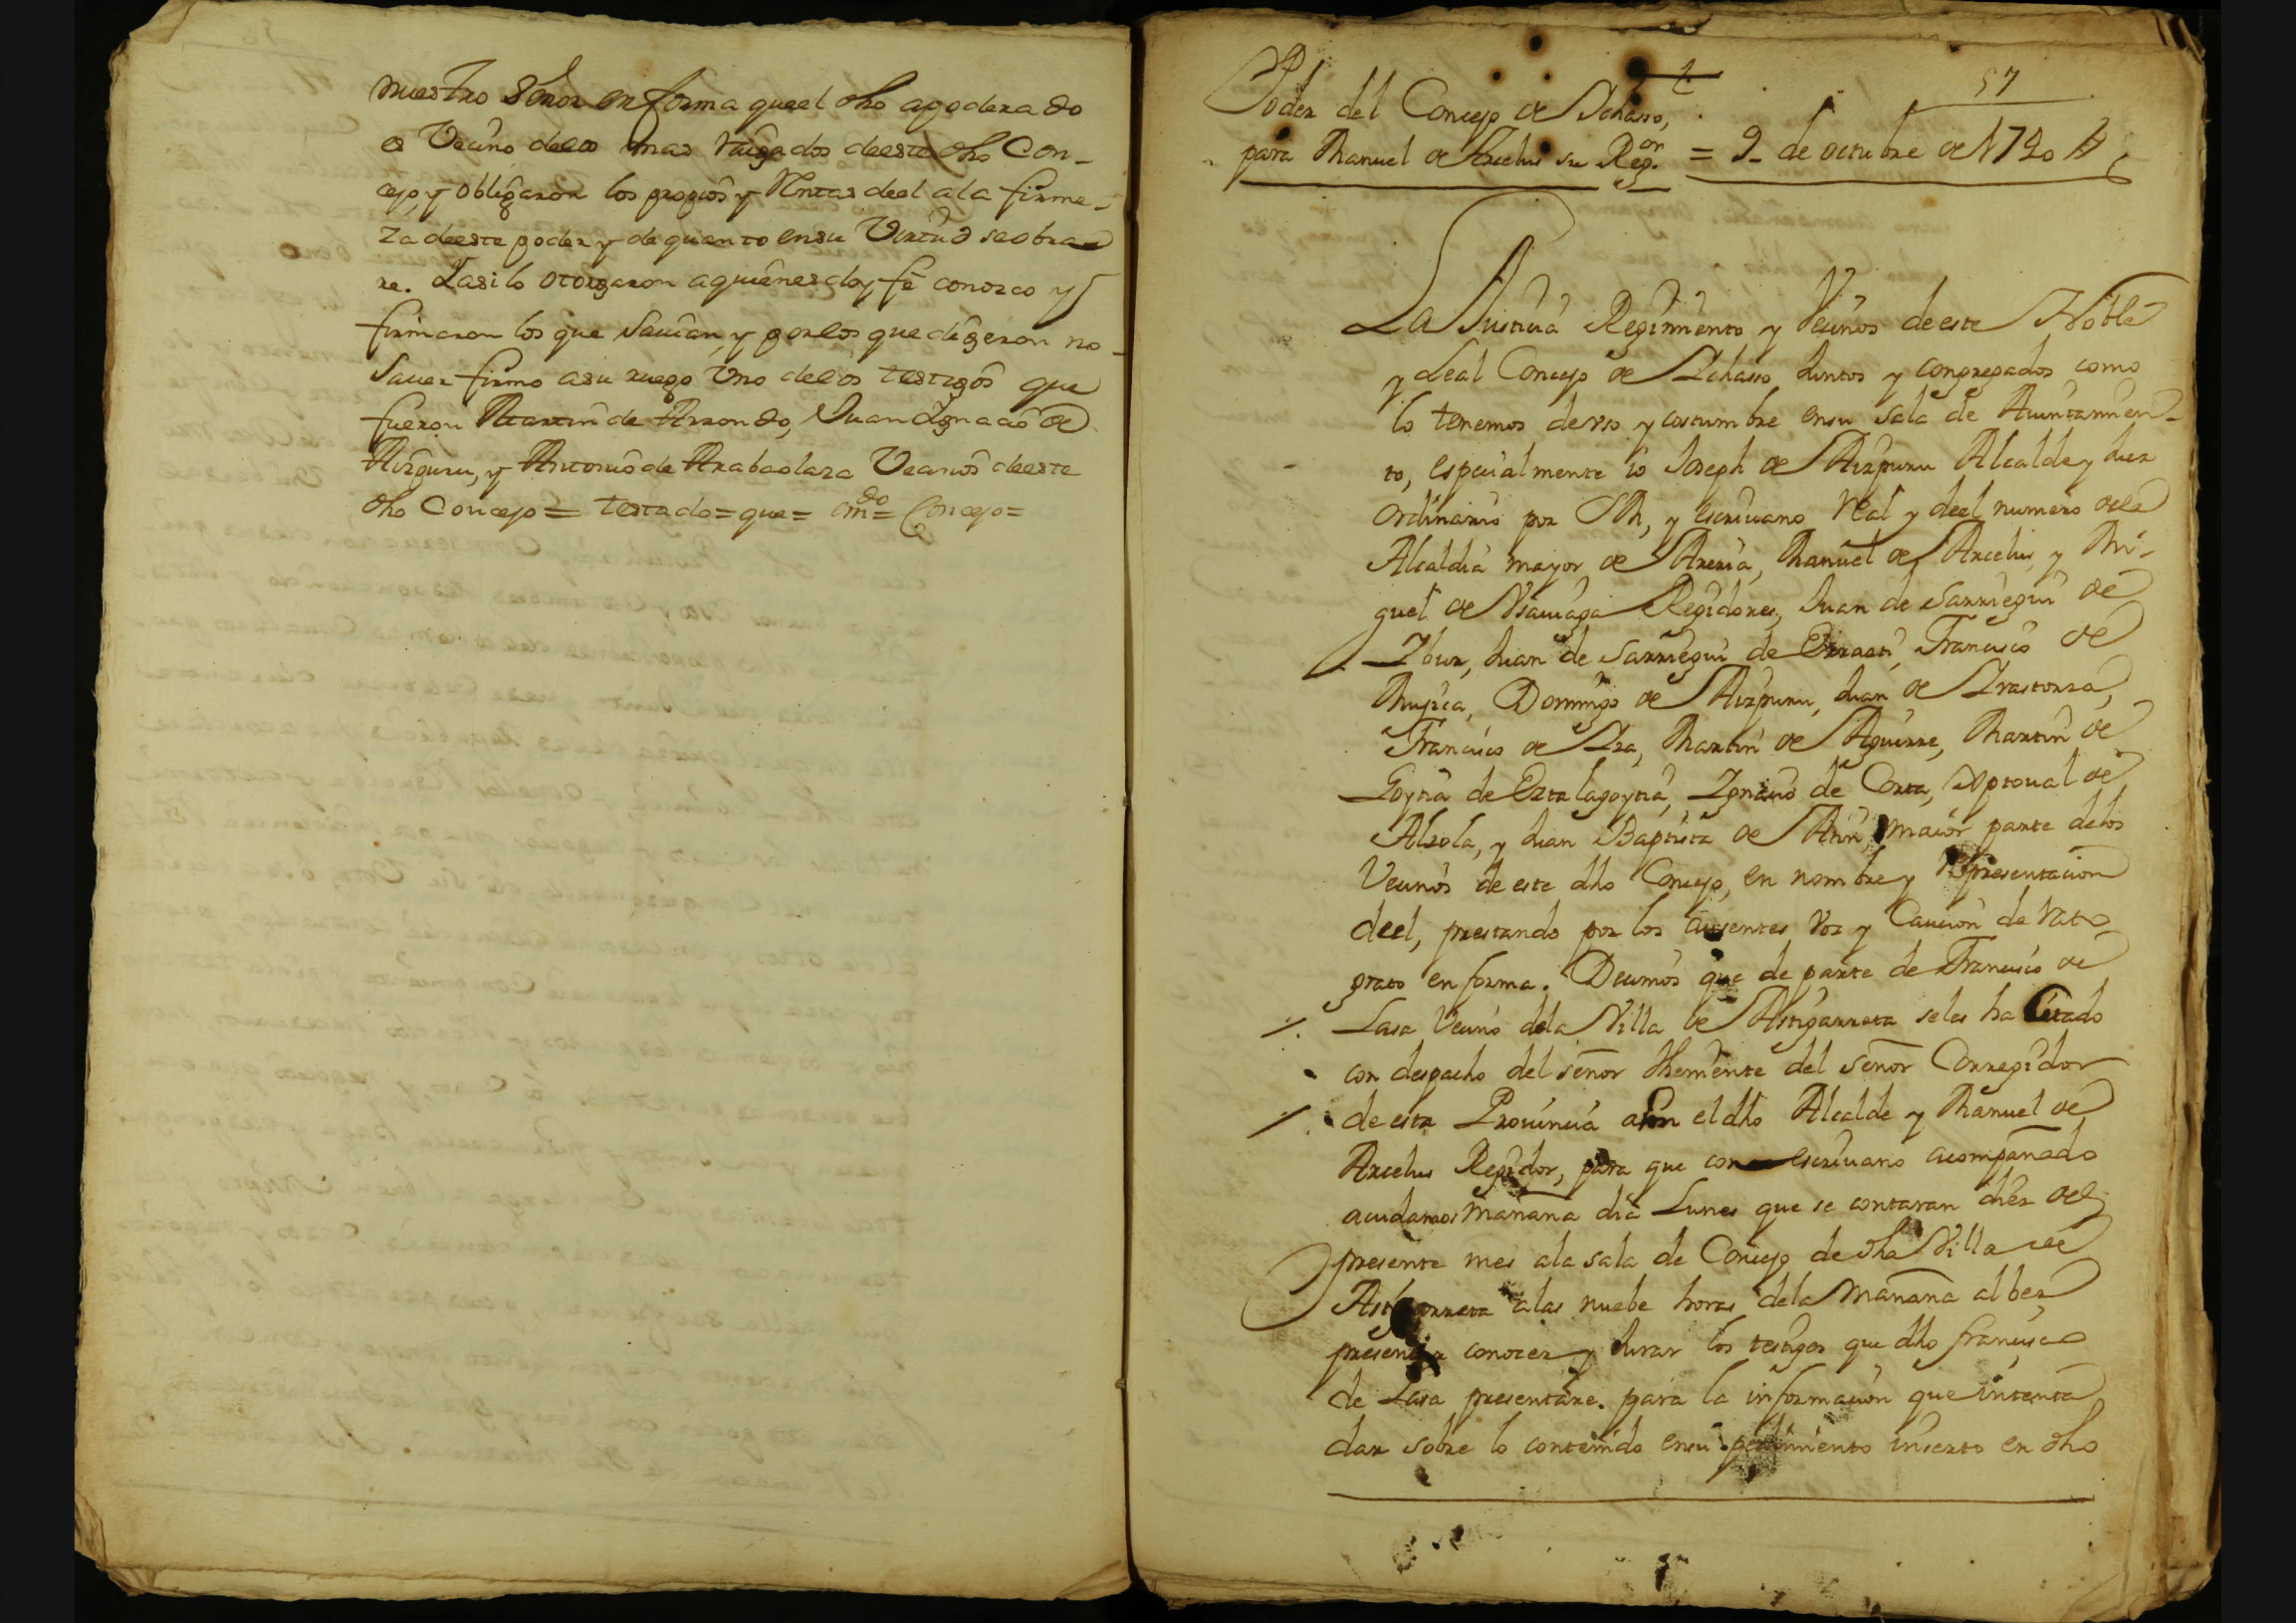 nuestro Señor en forma que el dho apoderado
es Vecino delos mas raigados deeste dho Con-
cejo, y obligaron los propios y Rentas deel ala firme-
za deeste poder y de quanto ensu Virtud se obra
re. Y asi lo otorgaron a quienes doy fe conozco y
firmaron los que savian, y por los que digeron no
saver firmo a su ruego Vno delos testigos que
fueron Martin de Arrondo, Juan Ygnacio de
Aizpuru, y Antonio de Arabaolaza Vecinos deeste
dho Concejo = testado = que = em.do = Concejo =
57
Poder del Concejo de Ychasso,
para Manuel de Arcelus su Reg.or = 9 de octubre de 1740
La Justicia Regimiento y Vecinos de este Noble
y Leal Concejo de Ychasso Juntos y congregados como
lo tenemos de vso y costumbre ensu sala de Aiuntamien-
to, especialmente io Joseph de Aizpuru Alcalde y Juez
ordinario por SM, y escriuano Real y deel numero dela
Alcaldia mayor de Areria, Manuel de Arcelus y Mi-
guel de Vsauiaga Regidores, Juan de Sarriegui de
Ybur, Juan de Sarriegui de Errasti, Francisco de
Mujica, Domingo de Aizpuru, Juan de Yrastorza,
Francisco de Yza, Martin de Aguirre, Martin de
Goytia de Eztalagoytia, Ygnacio de Orta, Xptoual de
Alzola, y Juan Baptista de maior parte delos
Vecinos de este dho Concejo, en nombre y Representacion
deel, prestando por los ausentes voz y Caucion de rato
grato en forma. Decimos que de parte de Francisco de
Lasa Vecino dela Villa de Astigarreta seles ha Citado
con despacho del señor theniente del señor Corregidor
de esta Prouincia a el dho Alcalde y Manuel de
Arcelus Regidor, para que con escriuano acompañado
acudamos mañana dia Lunes que se contaran diez del
presente mes ala sala de Concejo de dha Villa de
Astigarreta alas nuebe horas dela Mañana al ber
presentar conocer y Jurar los testigos que dho francisco
de Lasa presentare. para la informacion que intenta
dar sobre lo contenido ensu pedimiento inserto en dho